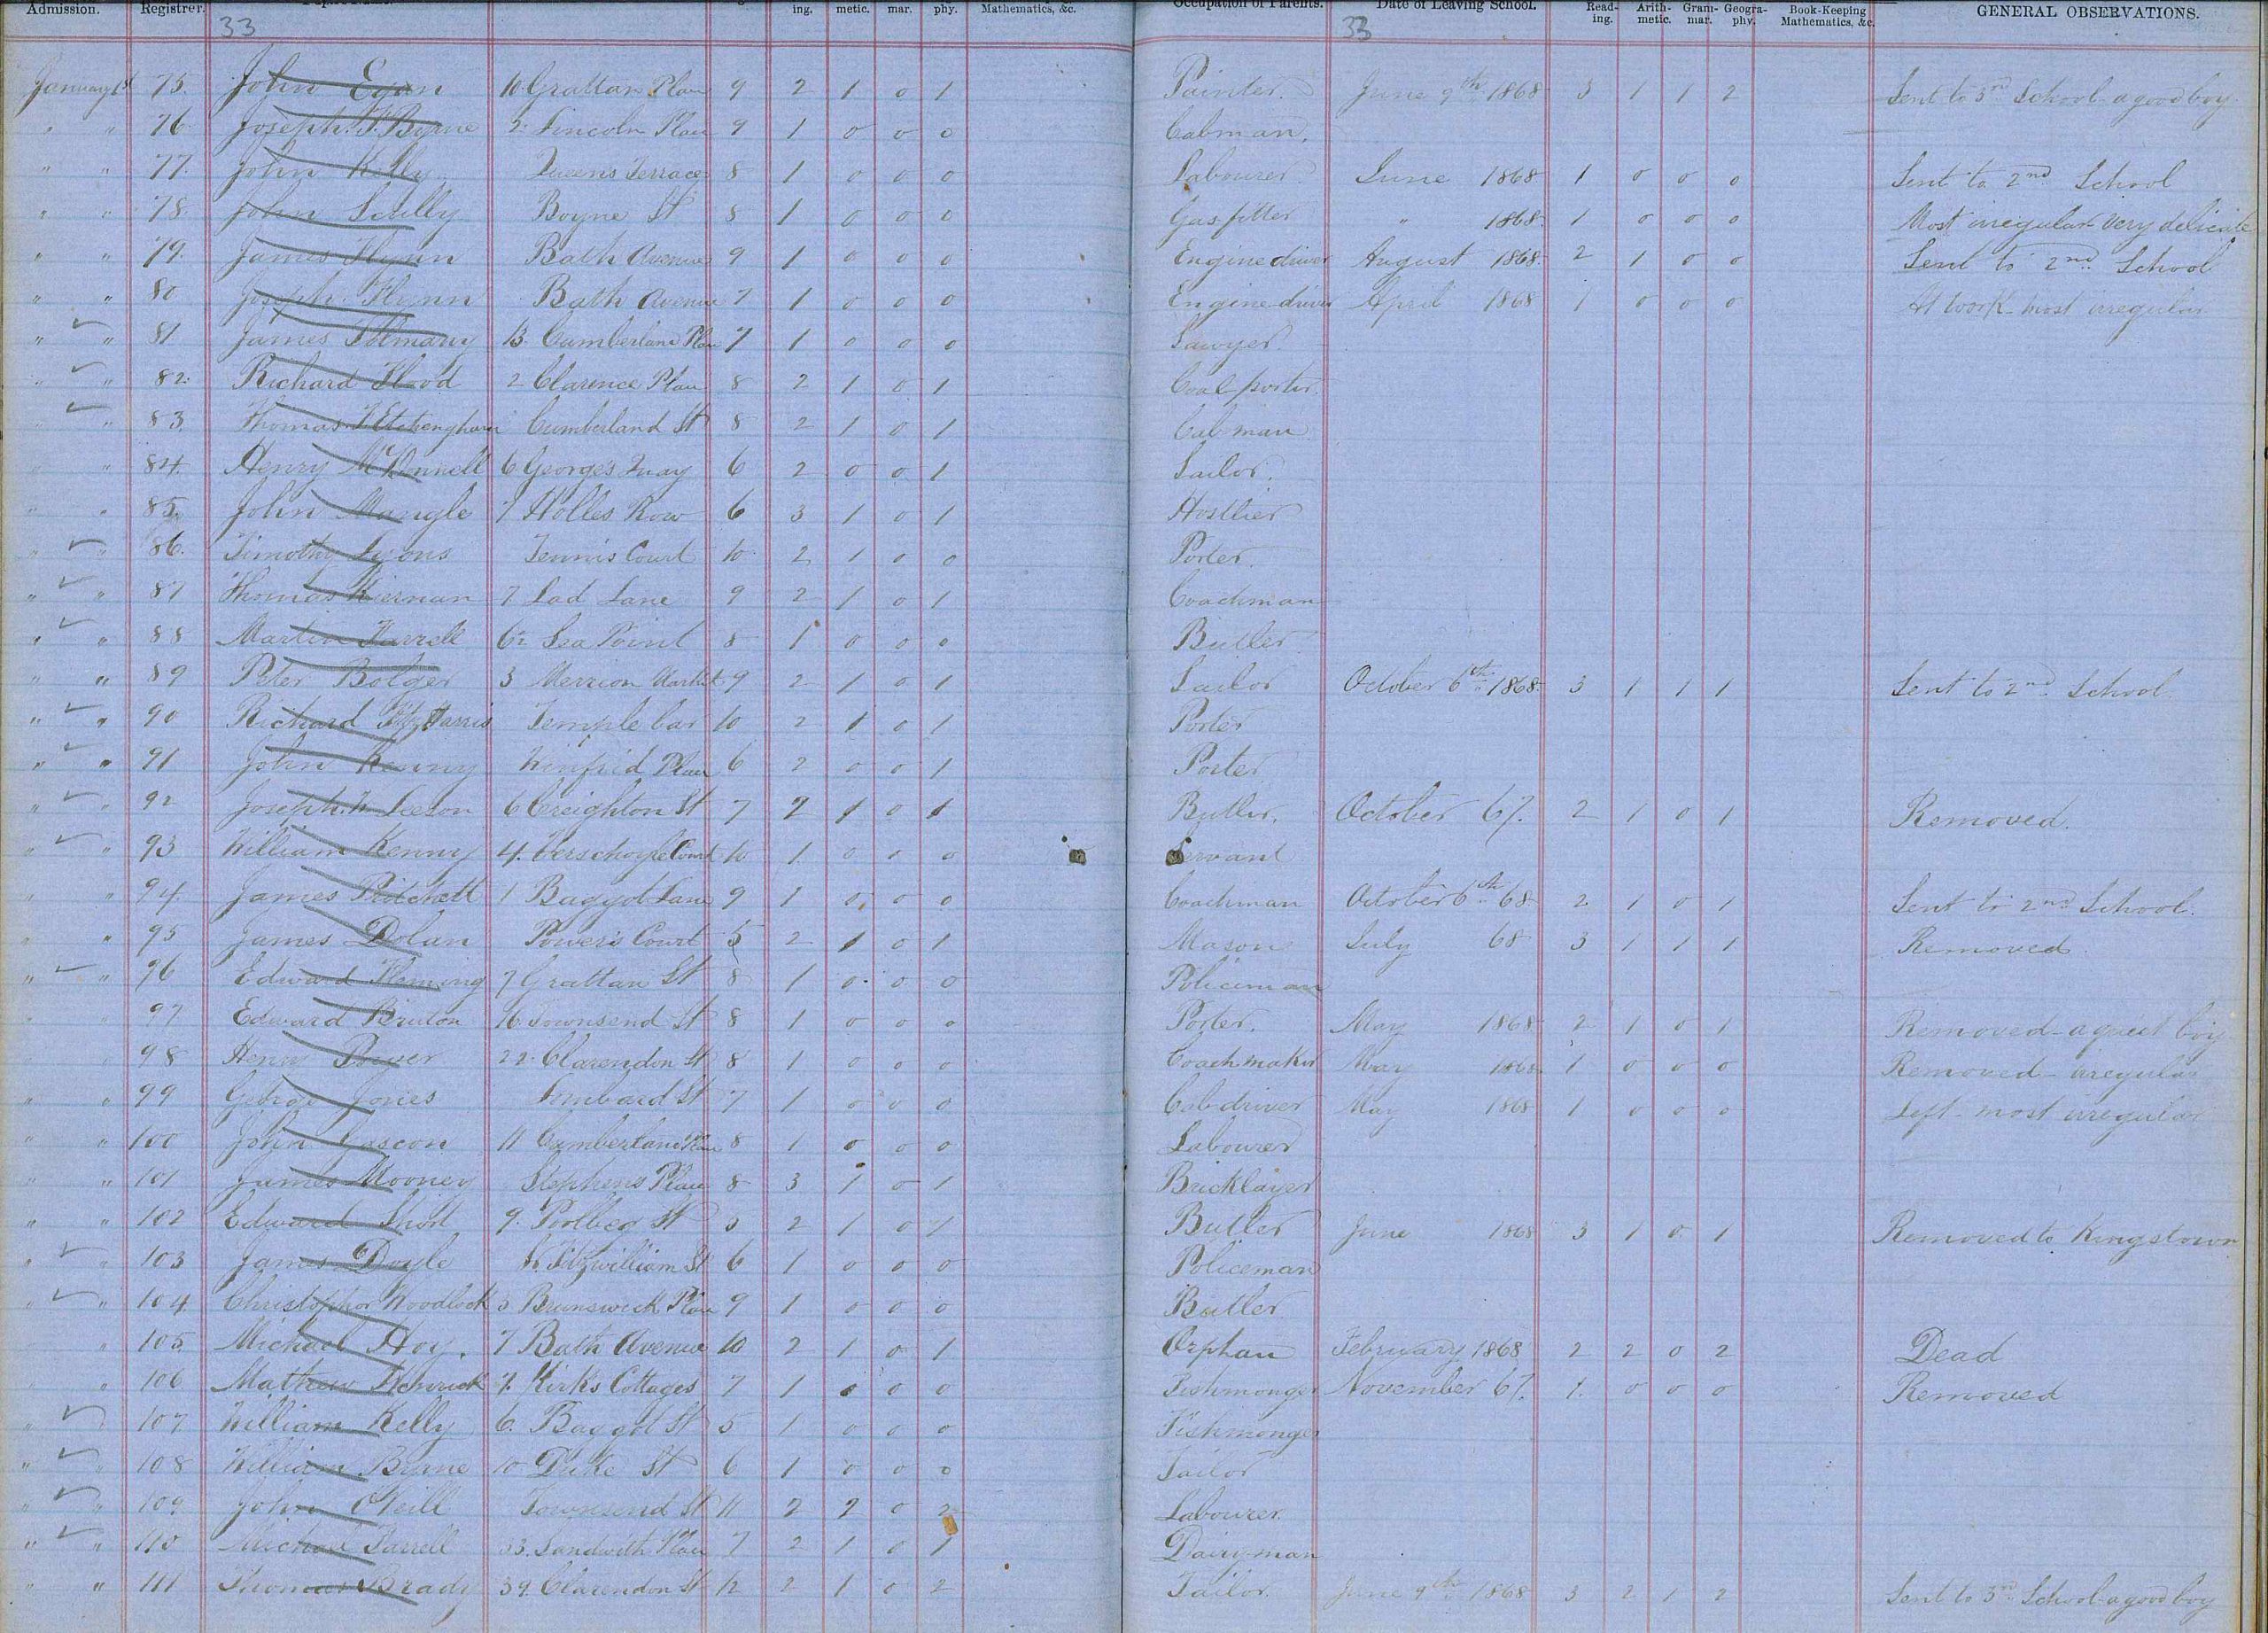 Admission. Registrer. ing. metic. mar. phy. Mathematics, &c. Occupation of Parents. Date of Leaving School. Read-ing. Arith-metic. Gram-mar. Geogra-phy. Book-Keeping Mathematics, &c. GENERAL OBSERVATIONS.
33 33
January 1st 75. John Egan 10 Grattan Place 9 2 1 0 1 Painter. June 9th 1868 3 1 1 2 Sent to 3rd School a good boy.
" " 76. Joseph. Byrne 2 Lincoln Place 9 1 0 0 0 Cabman.
" " 77. John Kelly Queens Terrace 8 1 0 0 0 Labourer. June 1868 1 0 0 0 Sent to 2nd School
" " 78. John Scully Boyne St 8 1 0 0 0 Gas fitter " 1868. 1 0 0 0 Most irregular very delicate
" " 79. James Flynn Bath Avenue 9 1 0 0 0 Engine driver August 1868. 2 1 0 0 Sent to 2nd School
" " 80 Joseph Flynn Bath Avenue 7 1 0 0 0 Engine driver April 1868 1 0 0 0 At work most irregular
" " 81 James 13. Cumberland Place 7 1 0 0 0 Sawyer.
" " 82. Richard Flood 2 Clarence Place 8 2 1 0 1 Coal porter.
" " 83. Thomas J Etchingham Cumberland St 8 2 1 0 1 Cabman
" " 84. Henry McDonnell 6 Georges Quay 6 2 0 0 1 Sailor.
" " 85. John Mangle 7 Holles Row 6 3 1 0 1 Hostlier
" " 86. Timothy Lyons Tennis Court 10 2 1 0 0 Porter.
" " 87 Thomas Kiernan 7 Lad Lane 9 2 1 0 1 Coachman
" " 88 Martin Farrell Sea Point 8 1 0 0 0 Butler
" " 89 Peter Bolger 3 Merrion Market 9 2 1 0 1 Sailor October 6th 1868. 3 1 1 1 Sent to 2nd School.
" " 90 Richard Temple bar 10 2 1 0 1 Porter
" " 91 John Kenny Place 6 2 0 0 1 Porter
" " 92 Joseph. Leeson 6 Creighton St 7 2 1 0 1 Butler. October 67. 2 1 0 1 Removed.
" " 93 William Kenny 4. Verschoyle Court 10 1 0 0 Servant
" " 94. James Pritchett 1 Baggot Lane 9 1 0 0 0 Coachman October 6th 68 2 1 0 1 Sent to 2nd School.
" " 95 James Dolan Power's Court 5 2 1 0 1 Mason July 68 3 1 1 1 Removed
" " 96 Edward Fleming 7 Grattan St 8 1 0 0 0 Policeman
97 Edward Bruton 16 Townsend St 8 1 0 0 0 Porter. May 1868 2 1 0 1 Removed - a quiet boy
98 Henry Power 22. Clarendon St 8 1 0 0 0 Coachmaker May 1868. 1 0 0 0 Removed - irregular
" " 99 George Jones Lombard St 7 1 0 0 0 Cab-driver May 1868 1 0 0 0 Left - most irregular
" " 100 John Gascon 11 Cumberland Place 8 1 0 0 0 Labourer
" " 101 James Mooney Stephens Place 8 3 1 0 1 Bricklayer
" " 102 Edward Short 9. Poolbeg St 5 2 1 0 1 Butler June 1868 3 1 0 1 Removed to Kingstown
" " 103 James Doyle Fitzwilliam St 6 1 0 0 0 Policeman
" " 104. Christopher Woodlock 3 Brunswick Place 9 1 0 0 0 Butler
" 105 Michael Hoy. 7 Bath Avenue 10 2 1 0 1 Orphan February 1868 2 2 0 2 Dead
" 106 Mathew 7. Kirk's Cottages 7 1 0 0 0 Fishmonger November 67. 1. 0 0 0 Removed
" 107 William Kelly 6. Baggot St 5 1 0 0 0 Fishmonger
" " 108 William Byrne 10 Duke St 6 1 0 0 0 Tailor
" " 109. John O'Neill Townsend St 11 2 2 0 2 Labourer.
" " 110 Michael Farrell 33. Sandwith Place 7 2 1 0 1 Dairyman
" " 111 Thomas Brady 39. Clarendon St 12 2 1 0 2 Tailor. June 9th 1868 3 2 1 2 Sent to 3rd School a good boy